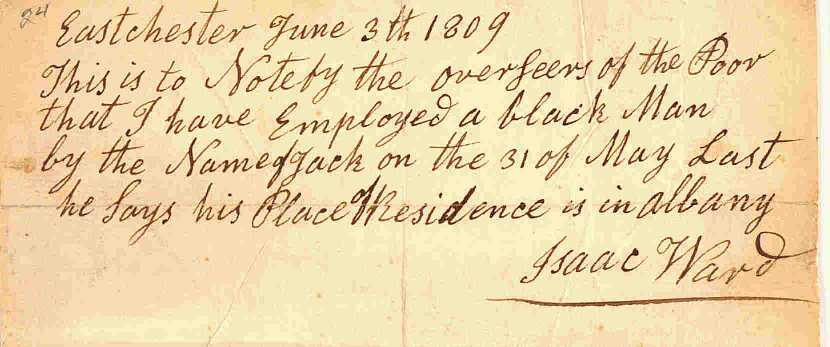 24
Eastchester June 3th 1809
This is to Notefy the overseers of the Poor
that I have Employed a black Man
by the Name of Jack on the 31 of May Last
he Says his Place of Residence is in albany
Isaac Ward